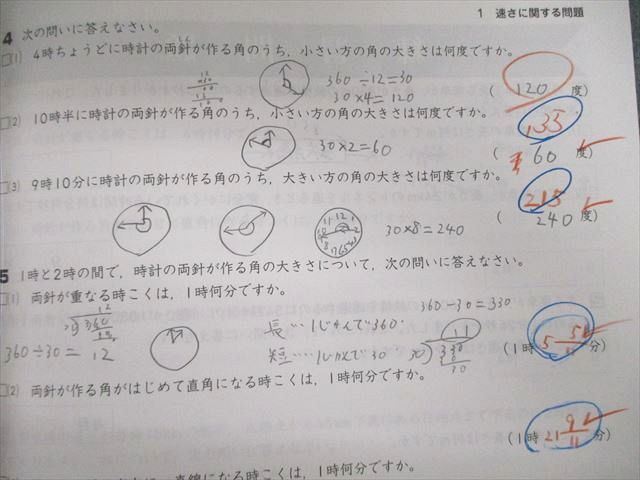 1 速さに関する問題
4 次の問いに答えなさい。
□(1) 4時ちょうどに時計の両針が作る角のうち，小さい方の角の大きさは何度ですか。
360÷12=30
30×4=120
( 120 度)
□(2) 10時半に時計の両針が作る角のうち，小さい方の角の大きさは何度ですか。
135
30×2=60
( 60 度)
□(3) 9時10分に時計の両針が作る角のうち，大きい方の角の大きさは何度ですか。
215
30×8=240
( 240 度)
5 1時と2時の間で，時計の両針が作る角の大きさについて，次の問いに答えなさい。
□(1) 両針が重なる時こくは，1時何分ですか。
360-30=330
長…1じかんで360
360÷30=12
短…1じかんで30
(1時 5 5/11 分)
□(2) 両針が作る角がはじめて直角になる時こくは，1時何分ですか。
(1時 21 9/11 分)
直線になる時こくは，1時何分ですか。